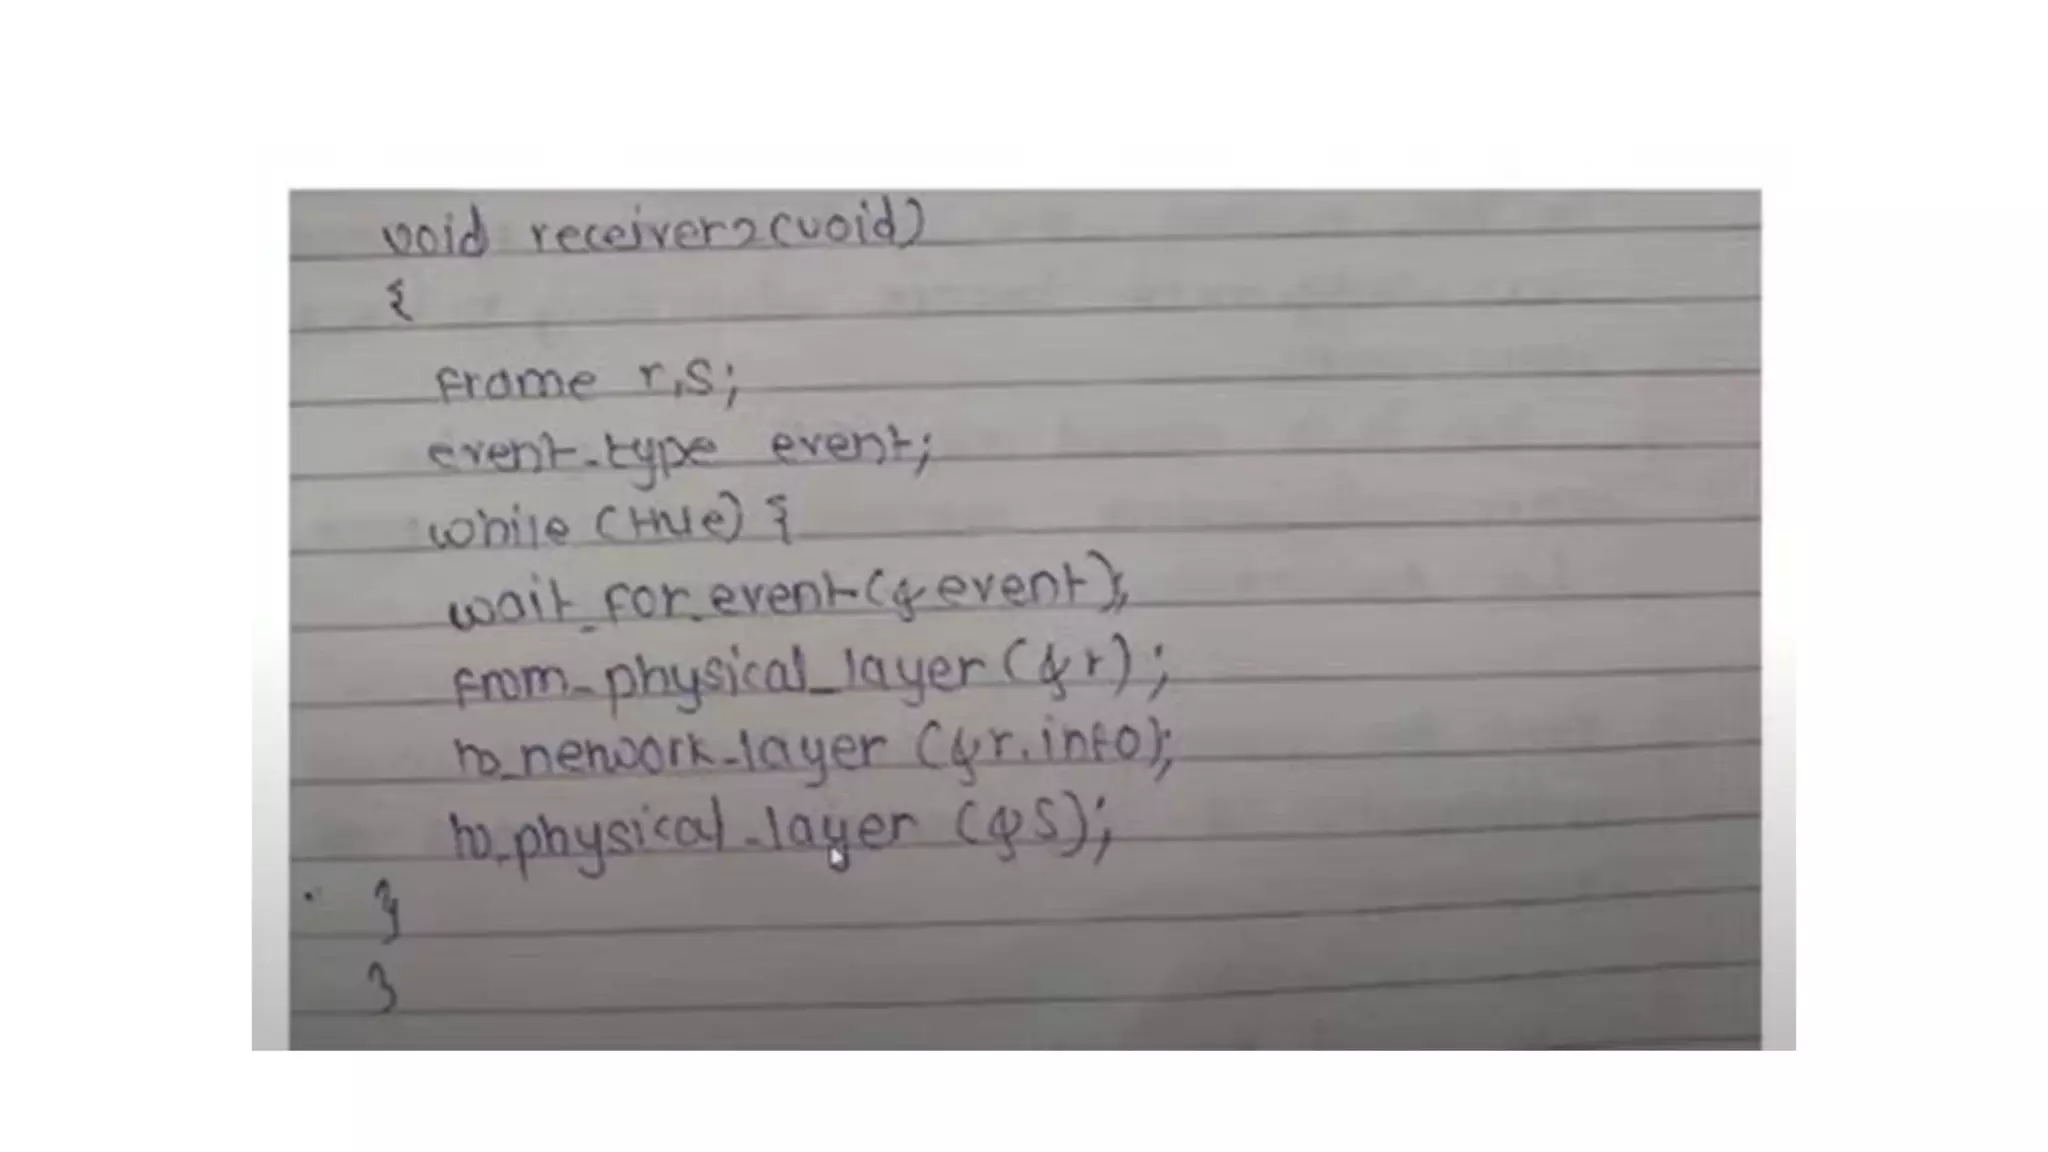 void receiver2(void)
{
frame r,s;
event_type event;
while (true) {
wait_for_event(&event);
from_physical_layer (&r);
to_network_layer (&r.info);
to_physical_layer (&s);
}
}